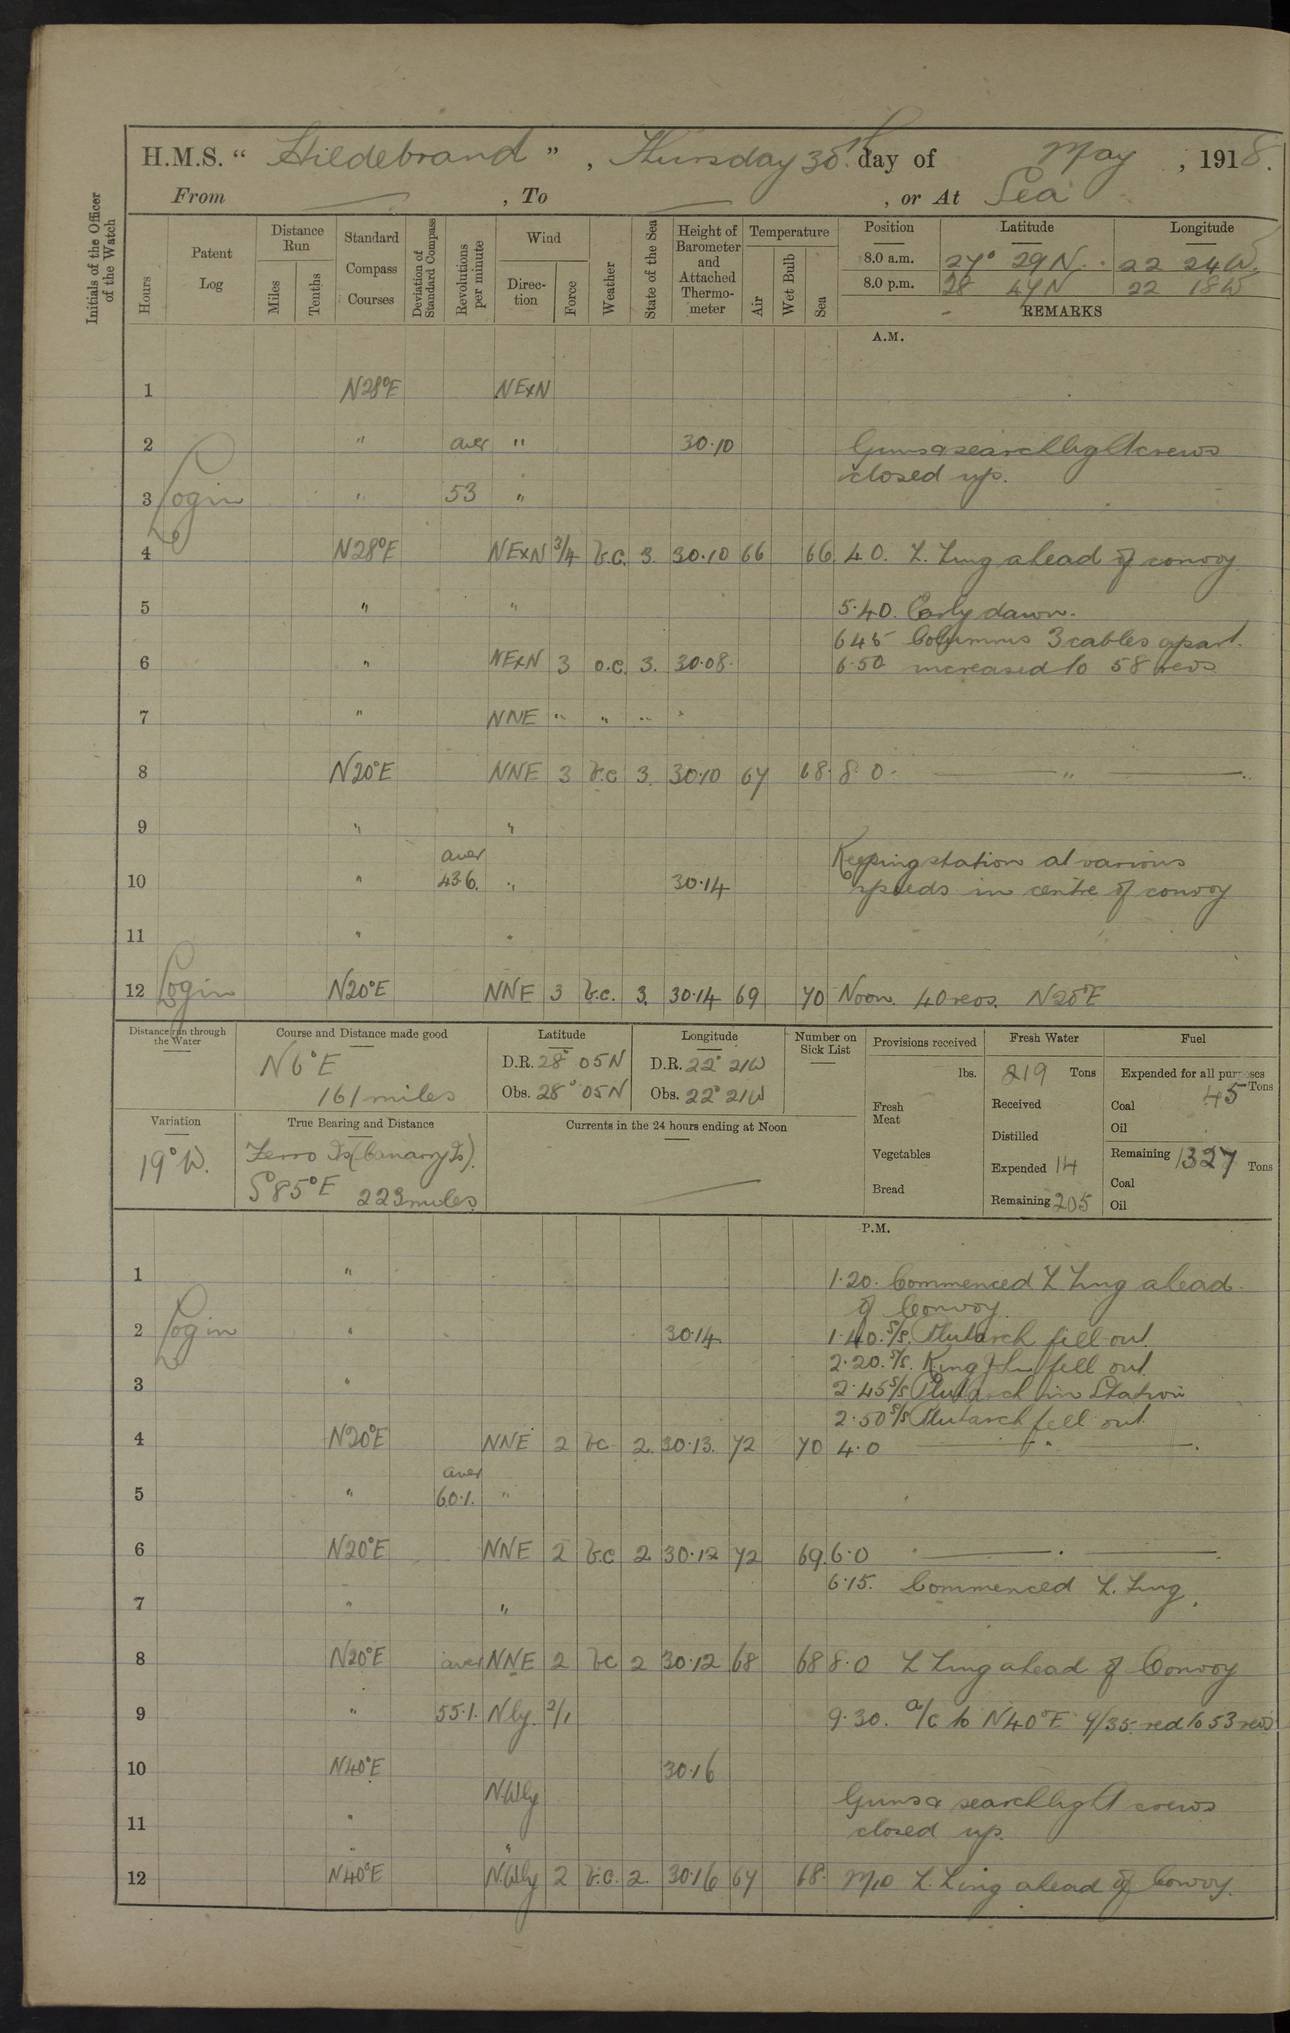 H.M.S. “ Hildebrand ” , Thursday 30th day of May , 1918.
From — , To — , or At Sea
Initials of the Officer of the Watch
Hours
Patent Log
Distance Run
Miles
Tenths
Standard Compass Courses
Deviation of Standard Compass
Revolutions per minute
Wind
Direction
Force
Weather
State of the Sea
Height of Barometer and Attached Thermometer
Temperature
Air
Wet Bulb
Sea
Position Latitude Longitude
8.0 a.m. 27° 29 N. 22 24 W.
8.0 p.m. 28 47 N 22 18 W
REMARKS
A.M.
1 N28°E NExN
2 " aver " 30.10 Guns & searchlight crews
closed up.
3 Login " 53 "
4 N28°E NExN 3/4 b.c. 3. 30.10 66 66 4.0. Z. Zing ahead of convoy
5 " " 5.40. Early dawn.
6.45 Columns 3 cables apart.
6 " NExN 3 o.c. 3. 30.08. 6.50 increased to 58 revs
7 " NNE " " "
8 N20°E NNE 3 b.c 3. 30.10 67 68. 8.0. — " —
9 " "
aver Keeping station at various
10 " 43.6. " 30.14 speeds in centre of convoy
11 " "
12 Login N20°E NNE 3 b.c. 3. 30.14 69 70 Noon. 40 revs. N20°E
Distance run through the Water
Course and Distance made good
N6°E
161 miles
Latitude
D.R. 28° 05 N
Obs. 28° 05 N
Longitude
D.R. 22° 21 W
Obs. 22° 21 W
Number on Sick List
Provisions received
lbs.
Fresh Meat
Vegetables
Bread
Fresh Water
219 Tons
Received
Distilled
Expended 14
Remaining 205
Fuel
Expended for all purposes
45 Tons
Coal
Oil
Remaining 1327 Tons
Coal
Oil
Variation
19° W.
True Bearing and Distance
Ferro Is (Canary Is).
S85°E 223 miles
Currents in the 24 hours ending at Noon
P.M.
1 " 1.20. Commenced Z Zing ahead
of Convoy.
2 Login " 30.14 1.40. S/S. Plutarch fell out
2.20. S/S. King John fell out
3 " 2.45 S/S Plutarch in Station
2.50 S/S Plutarch fell out
4 N20°E NNE 2 bc 2. 30.13. 72 70 4.0 — " —
aver
5 " 60.1. "
6 N20°E NNE 2 b.c 2 30.12 72 69. 6.0 — . —
6.15. Commenced Z. Zing.
7 " "
8 N20°E aver NNE 2 bc 2 30.12 68 68 8.0 Z Zing ahead of Convoy
9 " 55.1. Nly. 2/1 9.30. a/c to N40°E 9/35 red to 53 revs
10 N40°E 30.16
NWly Guns & searchlight crews
11 " closed up.
12 N40°E NWly 2 b.c. 2. 30.16 67 68. Z. Zing ahead of Convoy.